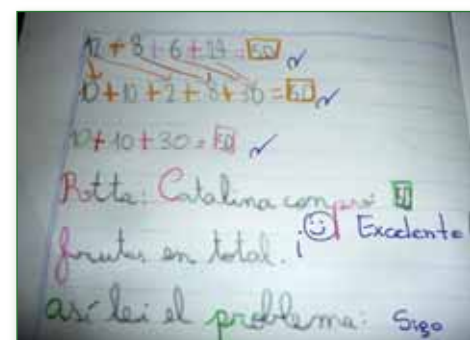 12 + 8 + 6 + 24 = 50
10 + 10 + 2 + 8 + 30 = 50
10 + 10 + 30 = 50
Rotta: Catalina compró 50
frutas en total. ¡ Excelente
así leí el problema: Sigo